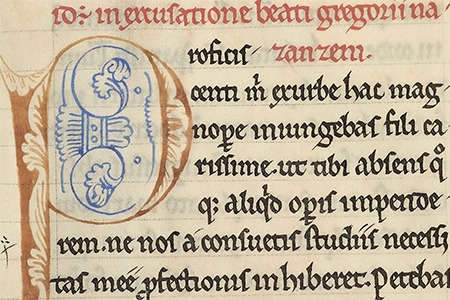 ıdoꝛ in excusatione beati gregorii na-
Proficis- zanzem.
centi m̅ exurbe hac mag-
nop̲e iniungebas fili ca-
rissime. ut tibi absens q̊
q; aliq̇d op̲is impende-
rem. ne nos a consuetis studiis necessi-
tas meę p̲fectionis inhiberet. Petebas